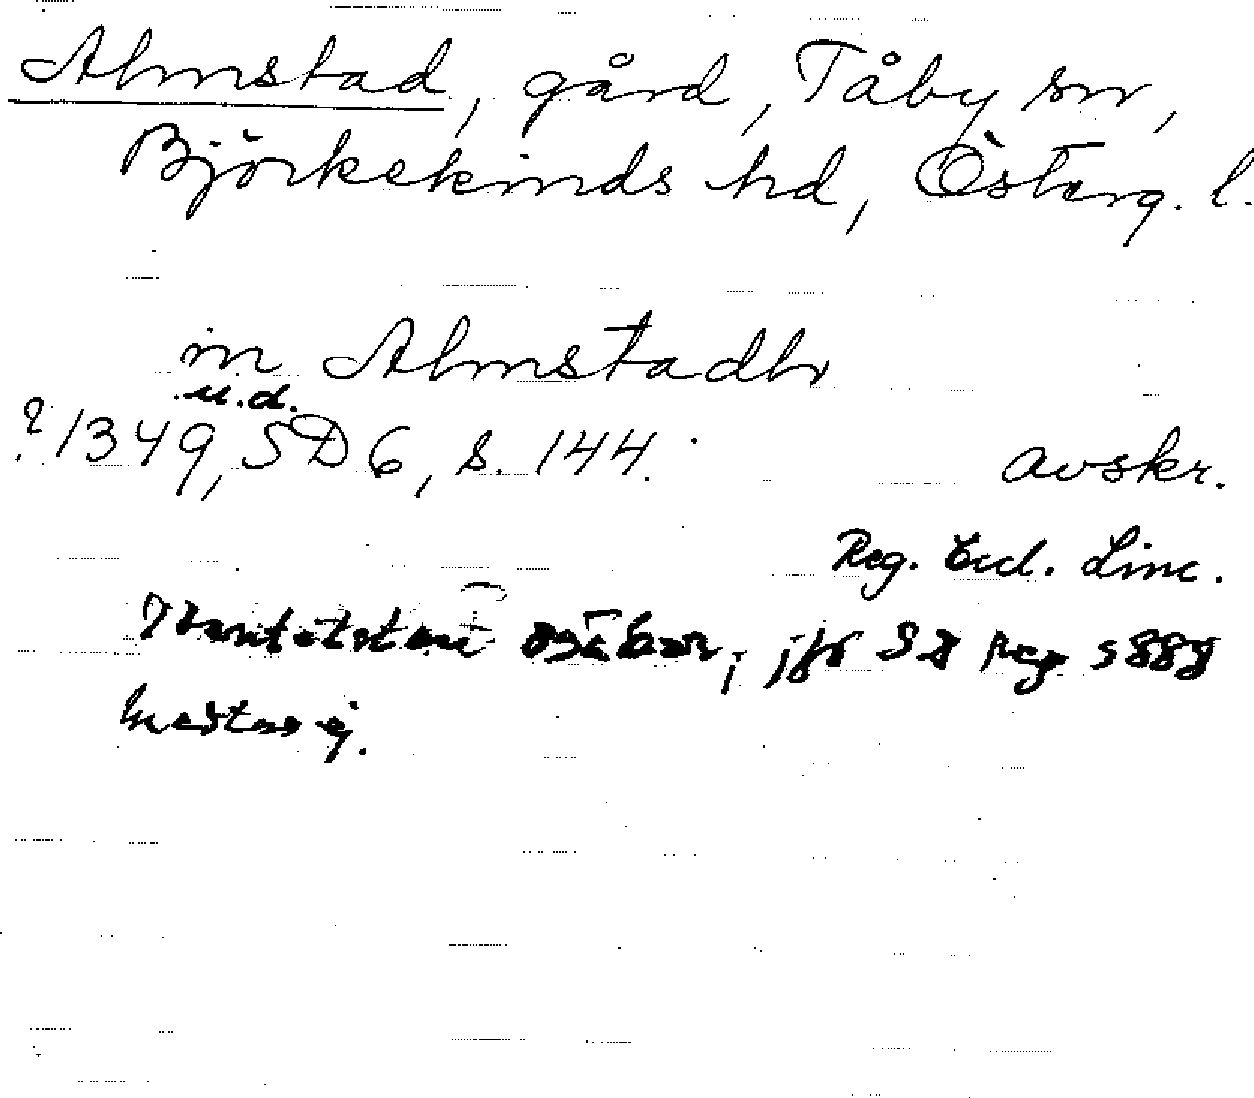 Almstad, gård, Tåby sn,
Björkekinds hd, Österg. l.
in Almstadh
u.d.
? 1349, SD 6, s. 144. avskr.
Reg. Eccl. Linc.
Identiteten osäker, jfr SD Reg s 888